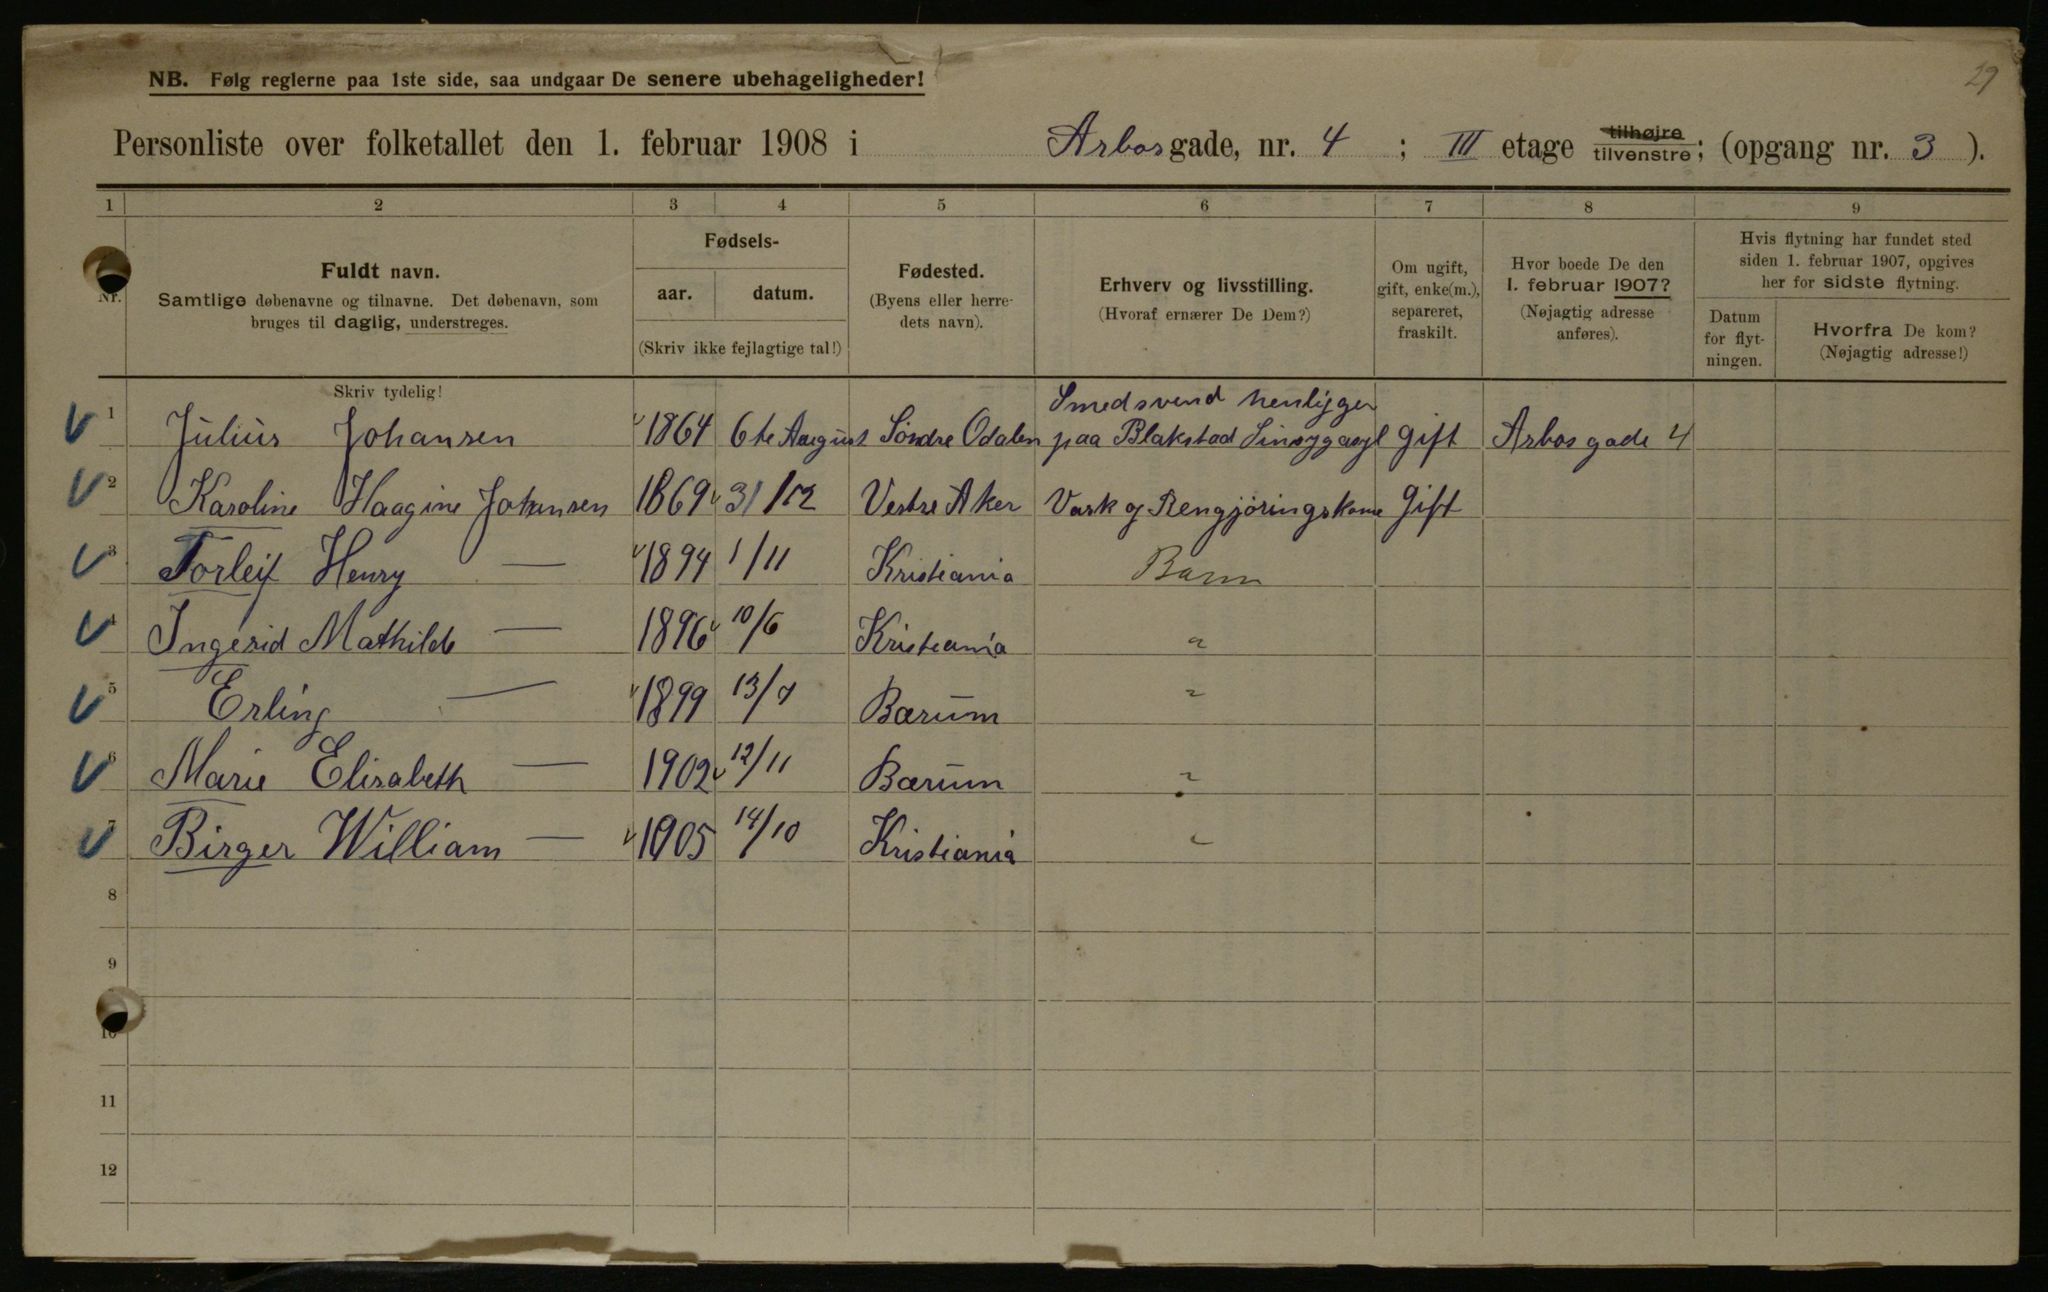 29
NB. Følg reglerne paa 1ste side, saa undgaar De senere ubehageligheder!
Personliste over folketallet den 1. februar 1908 i Arbos gade, nr. 4 ; III etage tilhøjre tilvenstre; (opgang nr. 3 ).
1 2 3 4 5 6 7 8 9
Nr.
Fuldt navn.
Samtlige døbenavne og tilnavne. Det døbenavn, som
bruges til daglig, understreges.
Fødsels-
aar. datum.
(Skriv ikke fejlagtige tal!)
Fødested.
(Byens eller herre-
dets navn).
Erhverv og livsstilling.
(Hvoraf ernærer De Dem?)
Om ugift,
gift, enke(m.),
separeret,
fraskilt.
Hvor boede De den
1. februar 1907?
(Nøjagtig adresse
anføres).
Hvis flytning har fundet sted
siden 1. februar 1907, opgives
her for sidste flytning.
Datum
for flyt-
ningen.
Hvorfra De kom?
(Nøjagtig adresse!)
Skriv tydelig!
Smedsvend henligger
1 Julius Johansen 1864 6te August Söndre Odalen paa Blakstad Sinsygasyl Gift Arbos gade 4
2 Karoline Haagine Johansen 1869 31/12 Vestre Aker Vask og Rengjöringskone Gift
3 Torleif Henry — 1894 1/11 Kristiania Barn
4 Ingerid Mathilde — 1896 10/6 Kristiania "
5 Erling — 1899 13/7 Bærum "
6 Marie Elisabeth — 1902 12/11 Bærum "
7 Birger William — 1905 14/10 Kristiania "
8
9
10
11
12